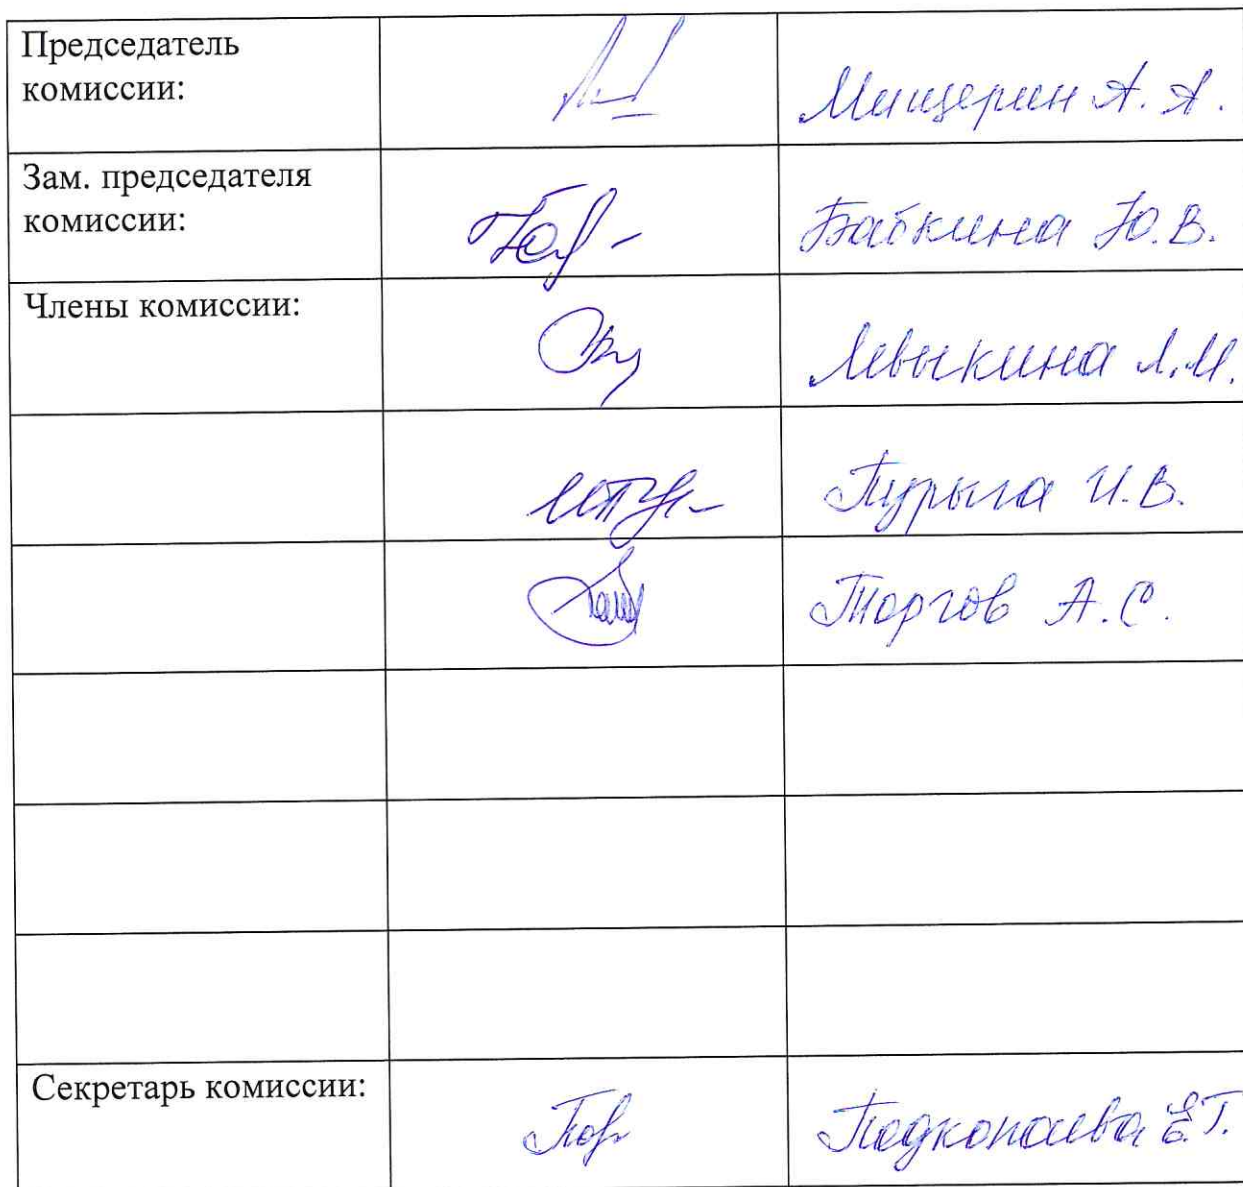 Председатель
комиссии:
Мищерин А. А.
Зам. председателя
комиссии:
Бабкина Ю.В.
Члены комиссии:
Левыкина Л.М.
Пурыга И.В.
Торгов А.С.
Секретарь комиссии:
Подкопаева Е.Г.